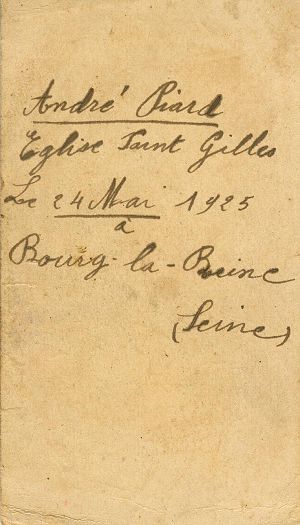 André Piard
Eglise Saint Gilles
Le 24 Mai 1925
à
Bourg-la-Reine
(Seine)